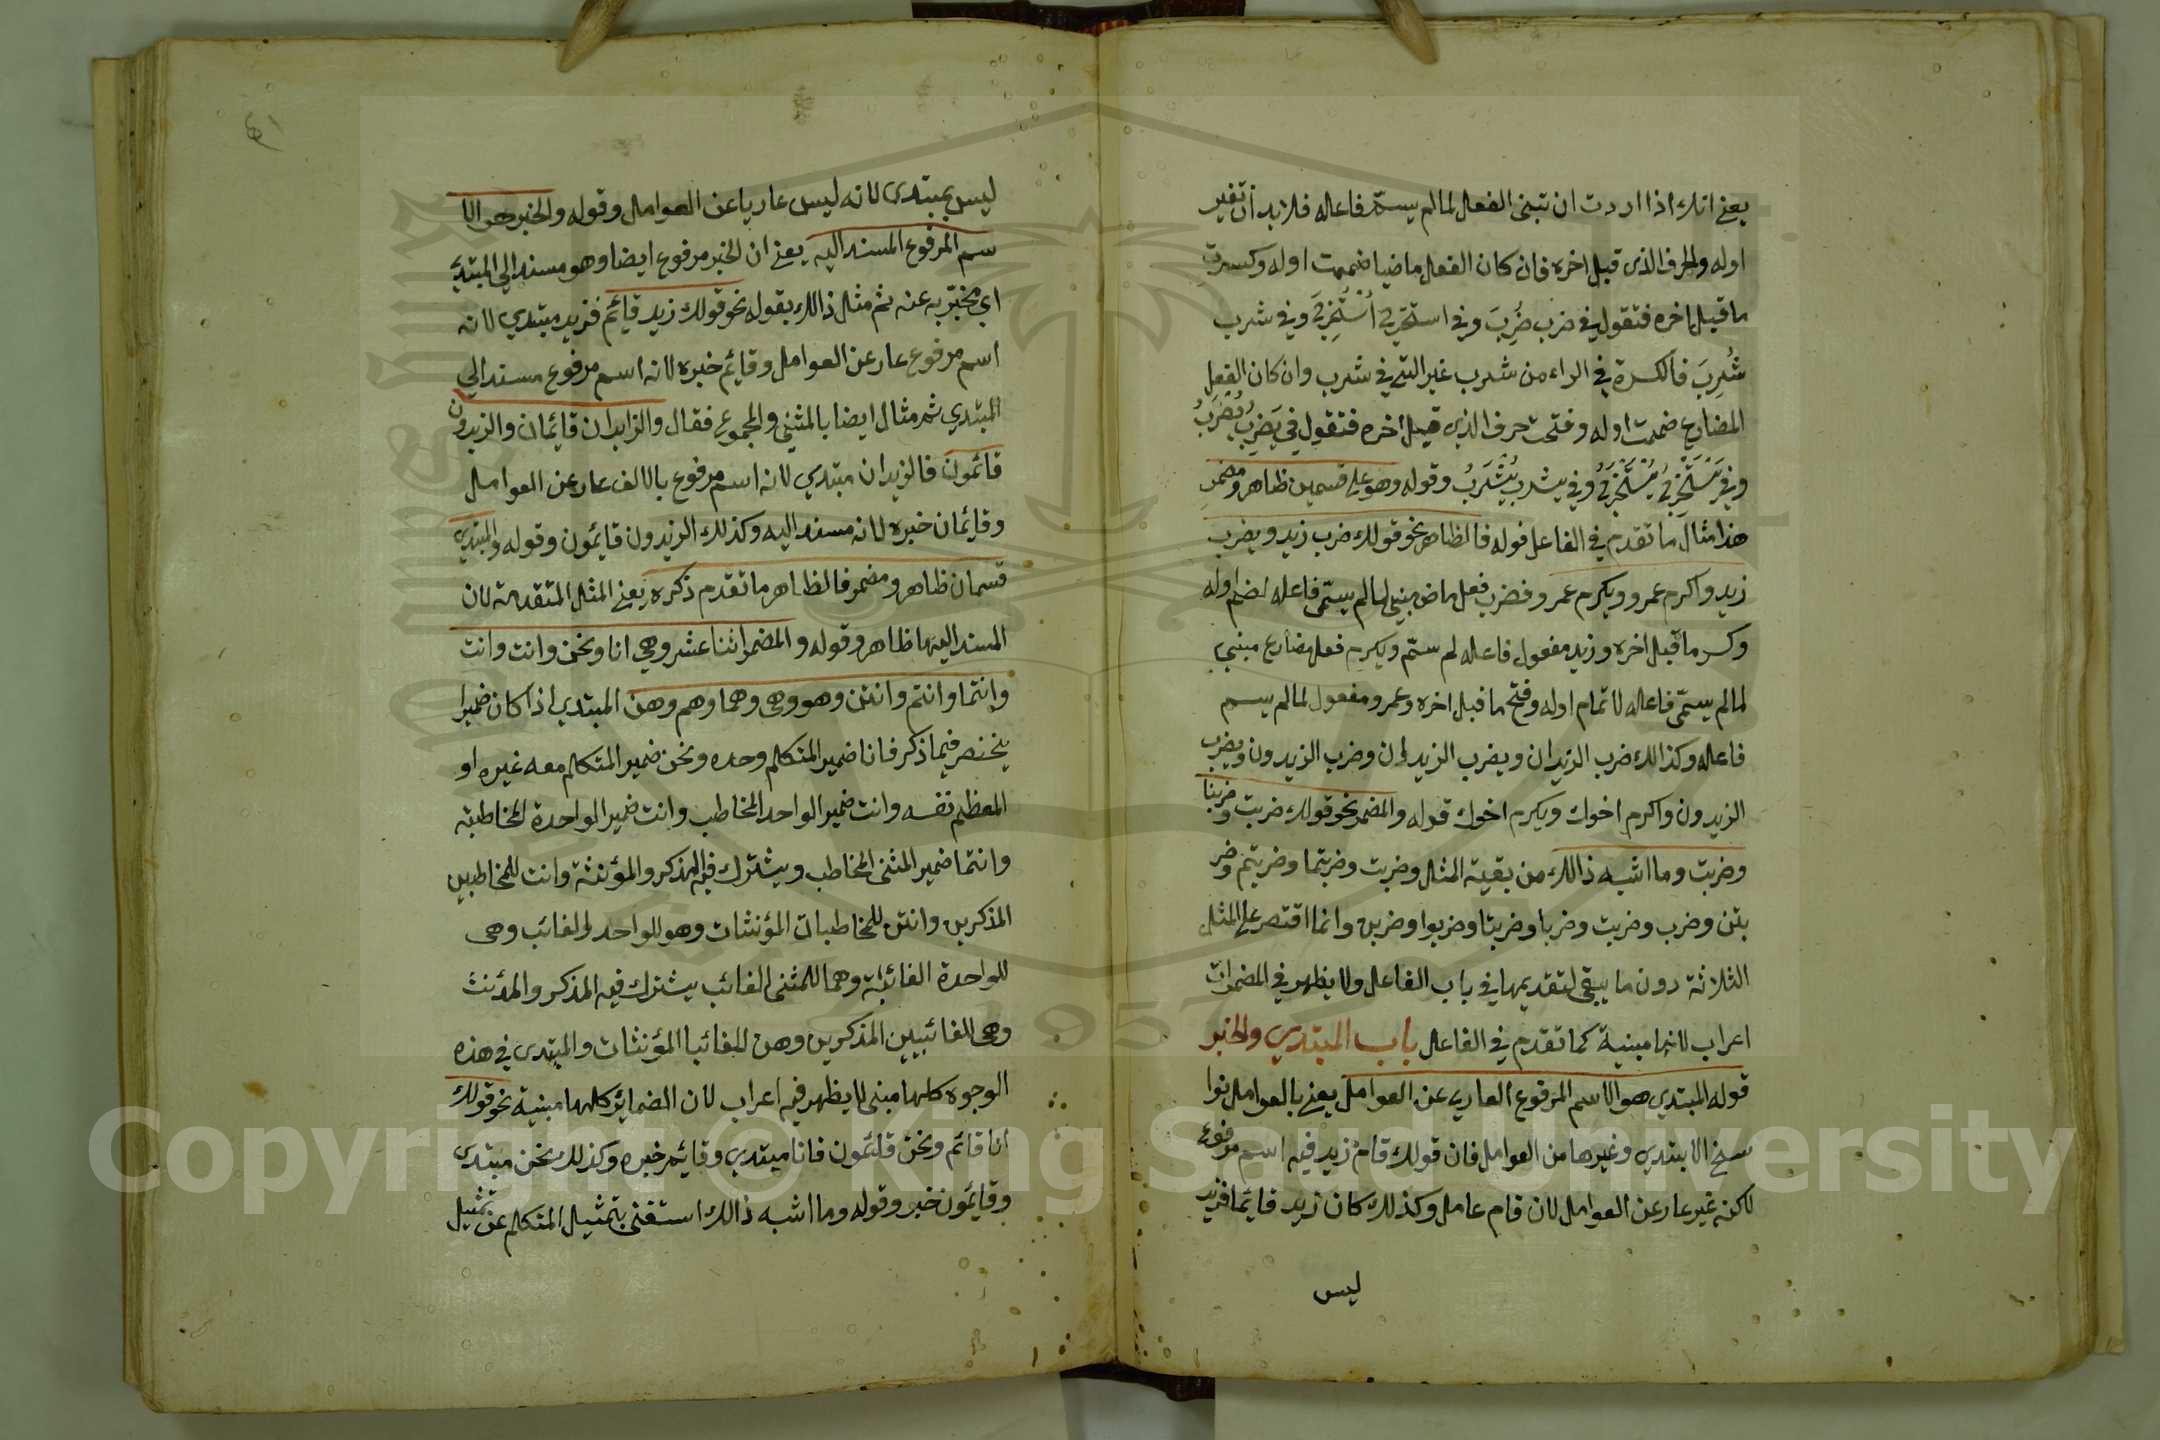 يعني انك اذا اردت ان تبنى الفعل لمالم يسمّ فاعله فلابد ان تغير
اوله والحرف الذى قبل اخره فان كان الفعل ماضيا ضممت اوله وكسرت
ما قبل اخره فتقول في ضرب ضُرِبَ وفي استخرج اُسْتُخْرِجَ وفي شرب
شُرِبَ فالكسرة في الراء من شرب غير التي في شرب وان كان الفعل
المضارع ضممت اوله وفتحت حرف الذي قبل اخره فتقول في يَضرِبُ يُضْرَبُ
وفي يَسْتَخْرِجُ يُسْتَخْرَجُ وفي يشرب يُشْرَبُ وقوله وهو على قسمين ظاهر ومضمر
هذا مثال ما تقدم في الفاعل قوله فالظاهر نحو قولك ضرب زيد ويضرب
زيد واكرم عمرو ويكرم عمرو فضرب فعل ماض مبني لمالم يسمّى فاعله لضم اوله
وكسر ما قبل اخره وزيد مفعول فاعله لم يسمّ ويكرم فعل مضارع مبني
لمالم يسمّى فاعله لاتمام اوله وفتح ما قبل اخره وعمرو مفعول لمالم يسم
فاعله وكذالك ضرب الزيدان ويضرب الزيدان وضرب الزيدون ويضرب
الزيدون واكرم اخوك ويكرم اخوك قوله والمضمر نحو قولك ضربت وضربنا
وضربت وما اشبه ذالك من بقية المثل وضربت وضربتما وضربتم وضر
بتن وضرب وضربت وضربا وضربتا وضربوا وضربن وانما اقتصر على المثل
الثلاثة دون ما يبقى لتقديمها في باب الفاعل ولا يظهر في المضمرات
اعراب لانها مبنية كما تقدم في الفاعل باب المبتدي والخبر
قوله المبتدي هو الاسم المرفوع العاري عن العوامل يعني بالعوامل نوا
سخ الابتدي وغيرها من العوامل فان قولك قام زيد فيه اسم مرفوع
لاكنه غير عار عن العوامل لان قام عامل وكذلك كان زيد قايما فزيد
ليس
ليس بمبتدى لانه ليس عاريا عن العوامل وقوله والخبر هو الا
سم المرفوع المسند اليه يعني ان الخبر مرفوع ايضا وهو مسند الي المبتدي
اي مخبّر به عنه ثم مثل ذالك بقوله نحو قولك زيد قايم فزيد مبتدي لانه
اسم مرفوع عار عن العوامل وقايم خبره لانه اسم مرفوع مسند الي
المبتدي ثم مثال ايضا بالمثنى والمجموع فقال والزايدان قايمان والزيدون
قائمون فالزيدان مبتدي لانه اسم مرفوع بالالف عار عن العوامل
وقايمان خبره لانه مسند اليه وكذلك الزيدون قايمون وقوله والمبتدي
قسمان ظاهر ومضمر فالظاهر ما تقدم ذكره يعني المثل المتقدمة لان
المسند اليها ظاهر وقوله والمضمر اثنا عشر وهي انا ونحن وانت وانت
وانتما وانتم وانتن وهو وهى وهما وهم وهن المبتدي اذا كان ضميرا
ينحصر فيما ذكر فانا ضمير المتكلم وحده ونحن ضمير المتكلم معه غيره او
المعظم نفسه وانت ضمير الواحد المخاطب وانت ضمير الواحدة المخاطبة
وانتما ضمير المثنى المخاطب ويشترك فيه المذكر والمؤنثة وانت للمخاطبين
المذكرين وانتن للمخاطبات المؤنثات وهو للواحد الغائب وهى
للواحدة الغائبة وهما للمثنى الغائب يشترك فيه المذكر والمؤنث
وهى للغائبيين المذكرين وهن للغائبا المؤنثات والمبتدى في هذه
الوجوه كلها مبنى لا يظهر فيه اعراب لان الضماير كلها مبنية نحو قولك
انا قائم ونحن قائمون فانا مبتدي وقايم خبره وكذلك نحن مبتدي
وقايمون خبر وقوله وما اشبه ذالك استغنى بتمثيل المتكلم عن تمثيل
Copyright © King Saud University
1957